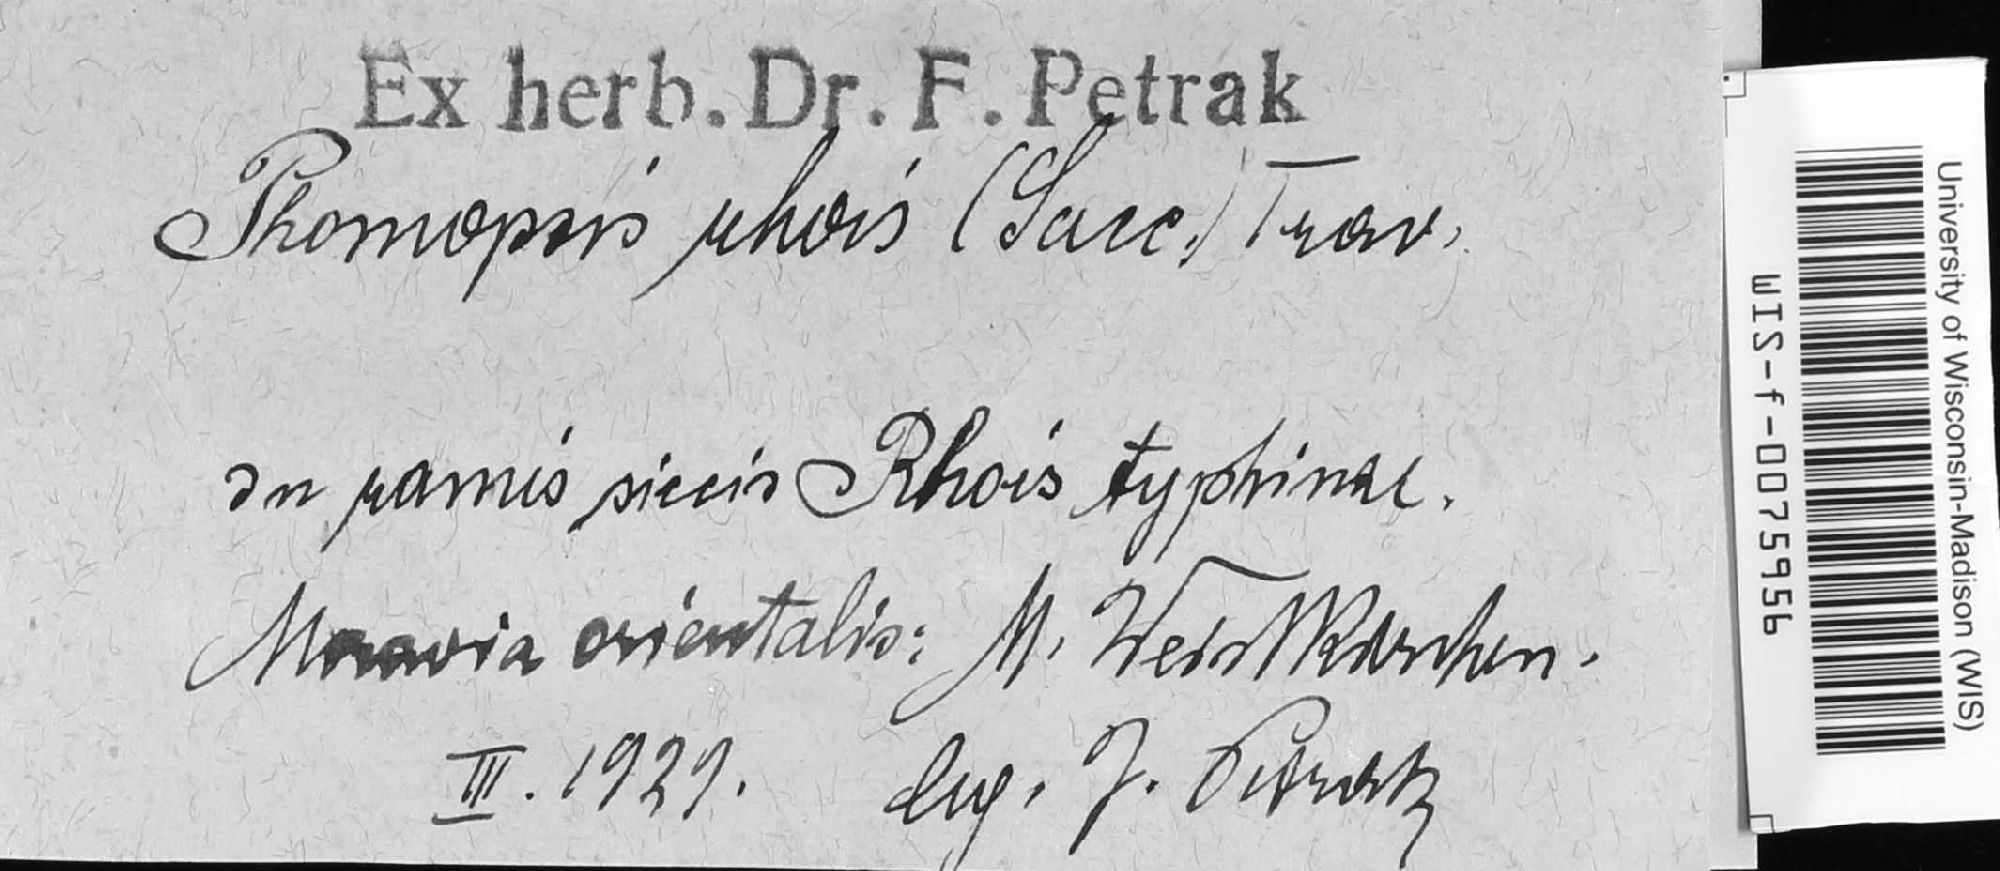 Ex herb. Dr. F. Petrak
Phomopsis rhois (Sacc.) Trav.
In ramis siccis Rhois typhinae.
Moravia orientalis: M. Weisskirchen.
III. 1929. leg. F. Petrak
University of Wisconsin-Madison (WIS)
WIS-f-0075956